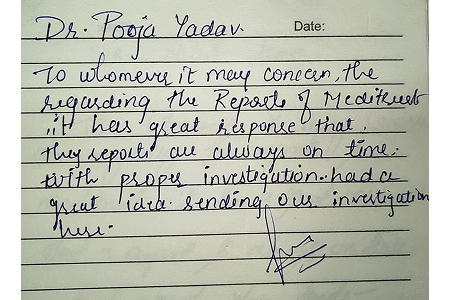 Dr. Pooja Yadav.
Date:
To whomever it may concern, the
regarding the Reports of Meditrust
it has great response that.
they reports are always on time.
with proper investigation. had a
great idea sending our investigation
here.